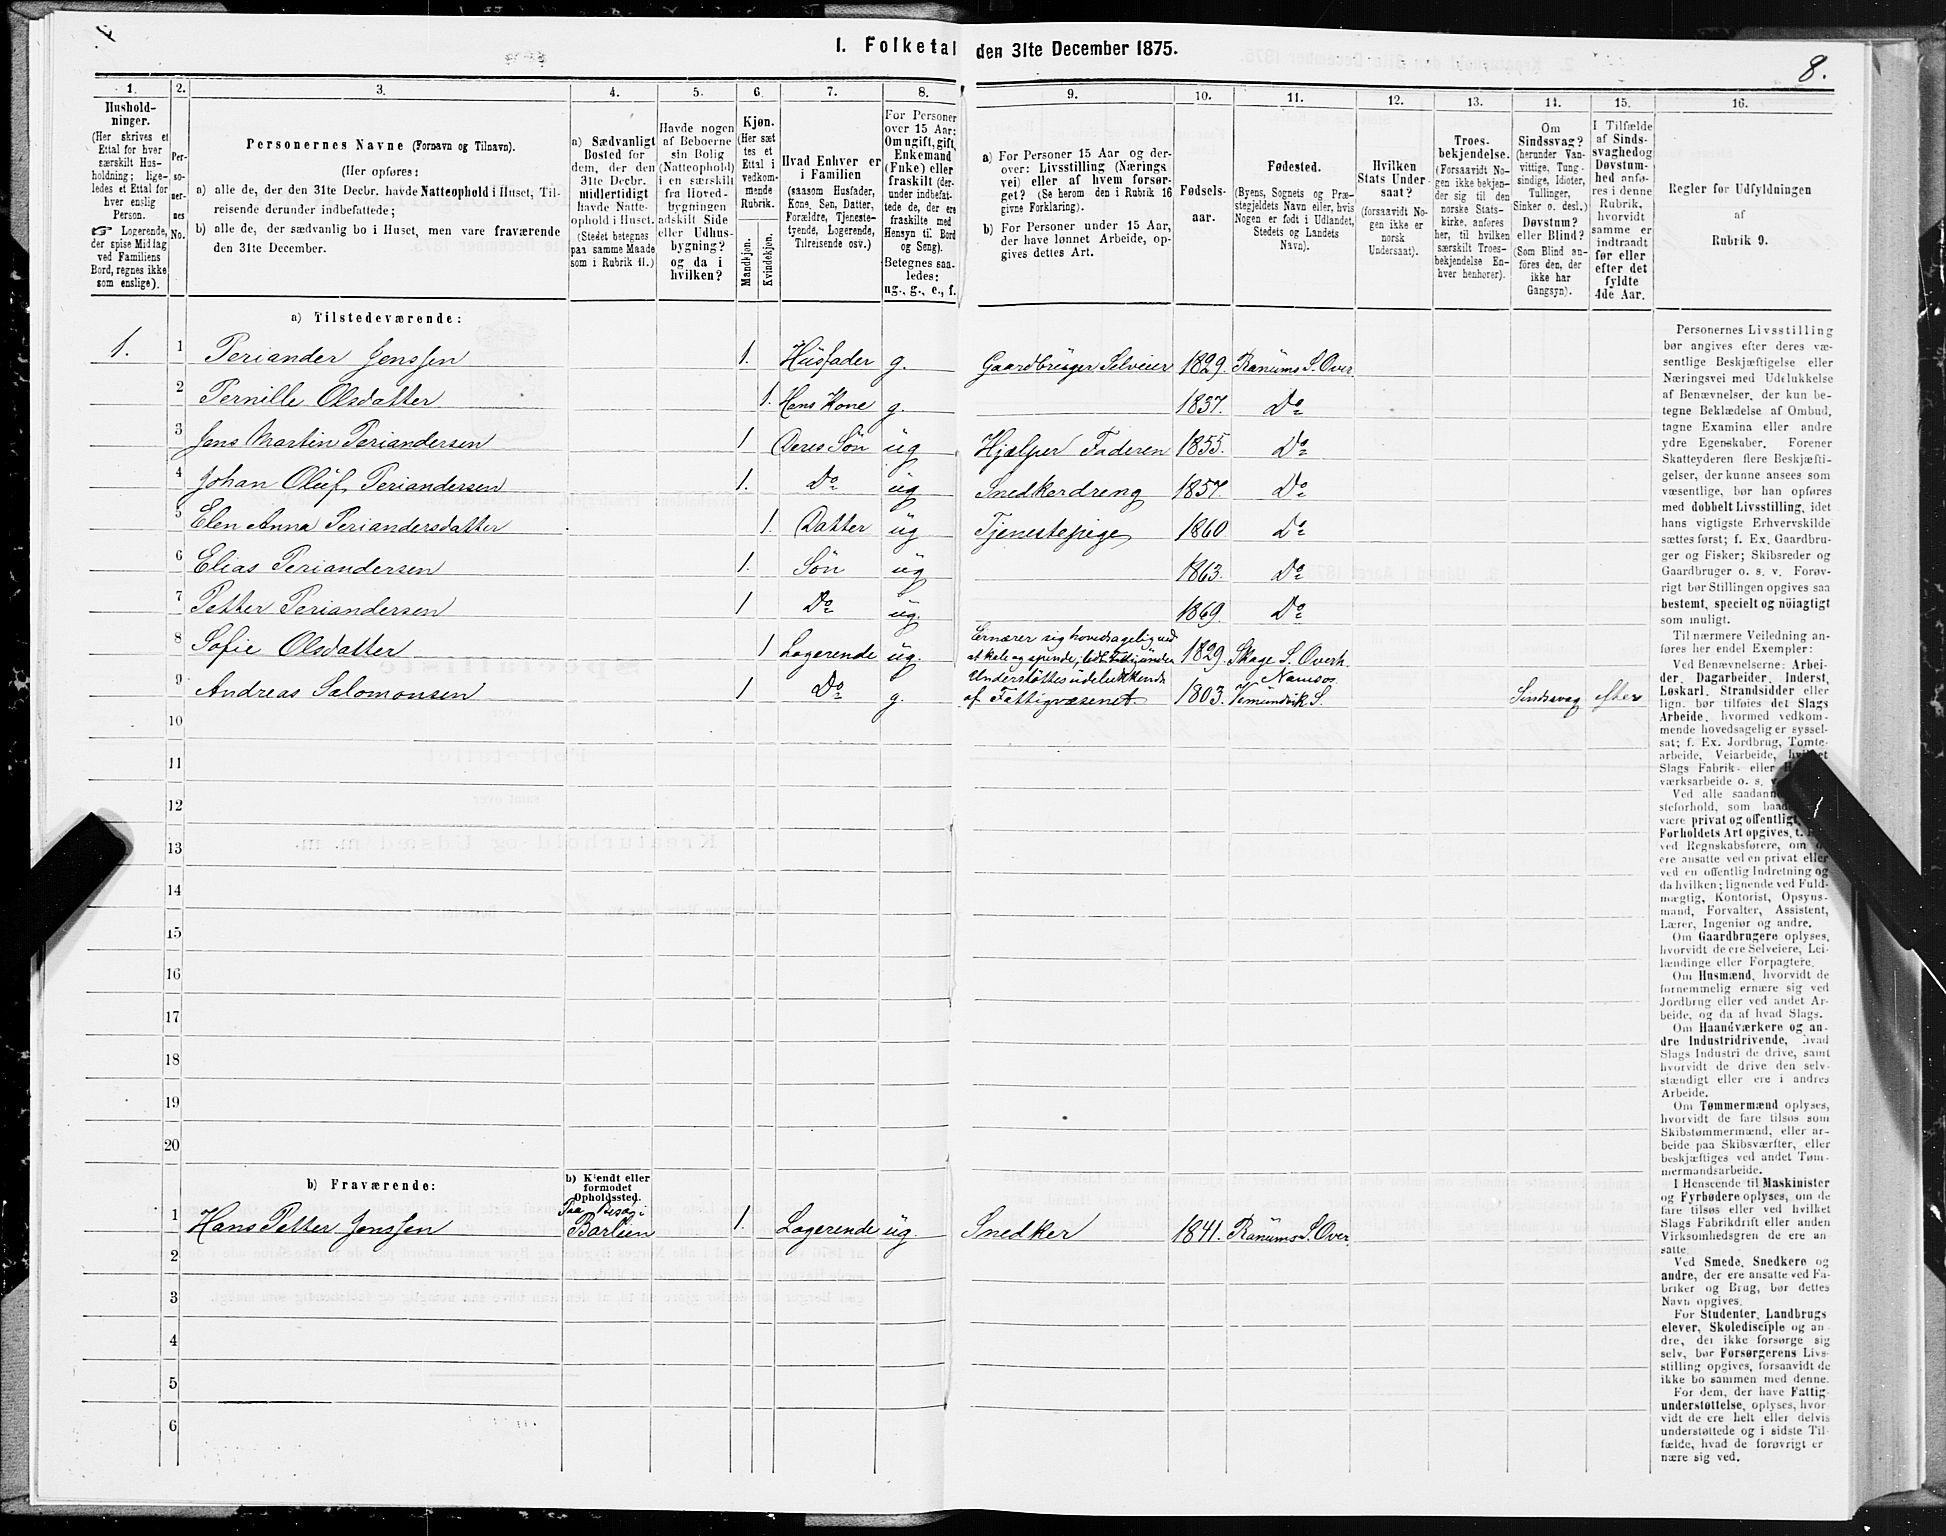 4
8.
1. Folketal den 31te December 1875.
1.
Hushold-
ninger.
(Her skrives et
Ettal for hver
særskilt Hus-
holdning; lige-
ledes et Ettal for
hver enslig
Person.
☞ Logerende,
der spise Middag
ved Familiens
Bord, regnes ikke
som enslige).
2.
Per-
so-
ner-
nes
No.
3.
Personernes Navne (Fornavn og Tilnavn).
(Her opføres:
a) alle de, der den 31te Decbr. havde Natteophold i Huset, Til-
reisende derunder indbefattede;
b) alle de, der sædvanlig bo i Huset, men vare fraværende
den 31te December.
4.
a) Sædvanligt
Bosted for
dem, der den
31te Decbr.
midlertidigt
havde Natte-
ophold i Huset.
(Stedet betegnes
paa samme Maade
som i Rubrik 11.)
5.
Havde nogen
af Beboerne
sin Bolig
(Natteophold)
i en særskilt
fra Hoved-
bygningen
adskilt Side
eller Udhus-
bygning?
og da i
hvilken?
6.
Kjøn.
(Her sæt
tes et
Ettal i
vedkom-
mende
Rubrik.
Mandkjøn.
Kvindekjøn.
7.
Hvad Enhver er
i Familien
(saasom Husfader,
Kone, Søn, Datter,
Forældre, Tjeneste-
tyende, Logerende,
Tilreisende osv.)
8.
For Personer
over 15 Aar:
Om ugift, gift,
Enkemand
(Enke) eller
fraskilt (der-
under indbefat-
tede de, der ere
fraskilte med
Hensyn til Bord
og Seng).
Betegnes saa-
ledes:
ug., g., e., f.
9.
a) For Personer 15 Aar og der-
over: Livsstilling (Nærings
vei) eller af hvem forsør-
get? (Se herom den i Rubrik 16
givne Forklaring).
b) For Personer under 15 Aar,
der have lønnet Arbeide, op-
gives dettes Art.
10.
Fødsels-
aar.
11.
Fødested.
(Byens, Sognets og Præ-
stegjeldets Navn eller, hvis
Nogen er født i Udlandet,
Stedets og Landets
Navn).
12.
Hvilken
Stats Under
saat?
(forsaavidt No-
gen ikke er
norsk
Undersaat).
13.
Troes-
bekjendelse.
(Forsaavidt No-
gen ikke bekjen-
der sig til den
norske Stats-
kirke, anføres
her, til hvilken
særskilt Troes-
bekjendelse En-
hver henhører).
14.
Om
Sindssvag?
(herunder Van-
vittige, Tung-
sindige, Idioter,
Tullinger,
Sinker o. desl.)
Døvstum?
eller Blind?
(Som Blind an-
føres den, der
ikke har
Gangsyn).
15.
I Tilfælde
af Sinds-
svaghed og
Døvstum-
hed anfø-
res i denne
Rubrik,
hvorvidt
samme er
indtraadt
før eller
efter det
fyldte
4de Aar.
16.
Regler for Udfyldningen
af
Rubrik 9.
a) Tilstedeværende:
1. 1 Periander Jenssen 1. Husfader g. Gaardbruger Selveier 1829. Ranums S. Over
2 Pernille Olsdatter 1. Hans Kone g. 1837. Do
3 Jens Martin Periandersen 1 Deres Søn ug Hjælper Faderen 1855. Do
4 Johan Oluf Periandersen 1. Do ug Snedkerdreng 1857. Do
5 Elen Anna Periandersdatter 1. Datter ug Tjenestepige 1860 Do
6 Elias Periandersen 1. Søn ug 1863. Do
7 Petter Periandersen 1 Do ug. 1869. Do
8 Sofie Olsdatter 1 Logerende ug. Ernærer sig hovedsagelig ved
at karde og spinde, lidt Fattigunder 1829. Skage S. Overh.
9 Andreas Salomonsen 1 Do g. Understøttes udelukkende
af Fattigvæsenet. 1803. Namsos
Vemundvik S. Sindssvag efter
10
11
12
13
14
15
16
17
18
19
20
b) Fraværende:
b) Kjendt eller
formodet
Opholdssted.
1 Hans Petter Jenssen Paa Besøg i
Barlien 1. Logerende ug. Snedker 1841. Ranums S. Over
2
3
4
5
6
Personernes Livsstilling
bør angives efter deres væ-
sentlige Beskjæftigelse eller
Næringsvei med Udelukkelse
af Benævnelser, der kun be-
tegne Beklædelse af Ombud,
tagne Examina eller andre
ydre Egenskaber. Forener
Skatteyderen flere Beskjæfti-
gelser, der kunne ansees som
væsentlige, bør han opføres
med dobbelt Livsstilling, idet
hans vigtigste Erhvervskilde
sættes først; f. Ex. Gaardbru-
ger og Fisker; Skibsreder og
Gaardbruger o. s. v. Forøv-
rigt bør Stillingen opgives saa
bestemt, specielt og nöiagtigt
som muligt.
Til nærmere Veiledning an-
føres her endel Exempler:
Ved Benævnelserne: Arbei-
der, Dagarbeider, Inderst,
Løskarl, Strandsidder eller
lign. bør tilføies det Slags
Arbeide, hvormed vedkom-
mende hovedsagelig er syssel-
sat; f. Ex. Jordbrug, Tomte-
arbeide, Veiarbeide, hvilket
Slags Fabrik- eller
værksarbeide o. s. v.
Ved alle saadanne
steforhold, som baade
være privat og offentligt,
Forholdets Art opgives, t.
ved Regnskabsførere, om
ere ansatte ved en privat eller
ved en offentlig Indretning og
da hvilken; lignende ved Fuld-
mægtig, Kontorist, Opsyns-
mand, Forvalter, Assistent,
Lærer, Ingeniør og andre.
Om Gaardbrugere oplyses,
hvorvidt de ere Selveiere, Lei-
lændinge eller Forpagtere.
Om Husmænd, hvorvidt de
fornemmelig ernære sig ved
Jordbrug eller ved andet Ar-
beide, og da af hvad Slags.
Om Haandværkere og an-
dre Industridrivende, hvad
Slags Industri de drive, samt
hvorvidt de drive den selv-
stændigt eller ere i andres
Arbeide.
Om Tømmermænd oplyses,
hvorvidt de fare tilsøs som
Skibstømmermænd, eller ar-
beide paa Skibsværfter, eller
beskjæftiges ved andet Tøm-
mermandsarbeide.
I Henseende til Maskinister
og Fyrbødere oplyses, om de
fare tilsøs eller ved hvilket
Slags Fabrikdrift eller anden
Virksomhedsgren de ere an-
satte.
Ved Smede, Snedkere og
andre, der ere ansatte ved Fa-
briker og Brug, bør dettes
Navn opgives.
For Studenter, Landbrugs
elever, Skoledisciple og an-
dre, der ikke forsørge sig
selv, bør Forsørgerens Livs-
stilling opgives, forsaavidt de
ikke bo sammen med denne.
For dem, der have Fattig-
understøttelse, oplyses, hvor
vidt de ere helt eller delvis
understøttede og i sidste Til-
fælde, hvad de forøvrigt er
nære sig ved.